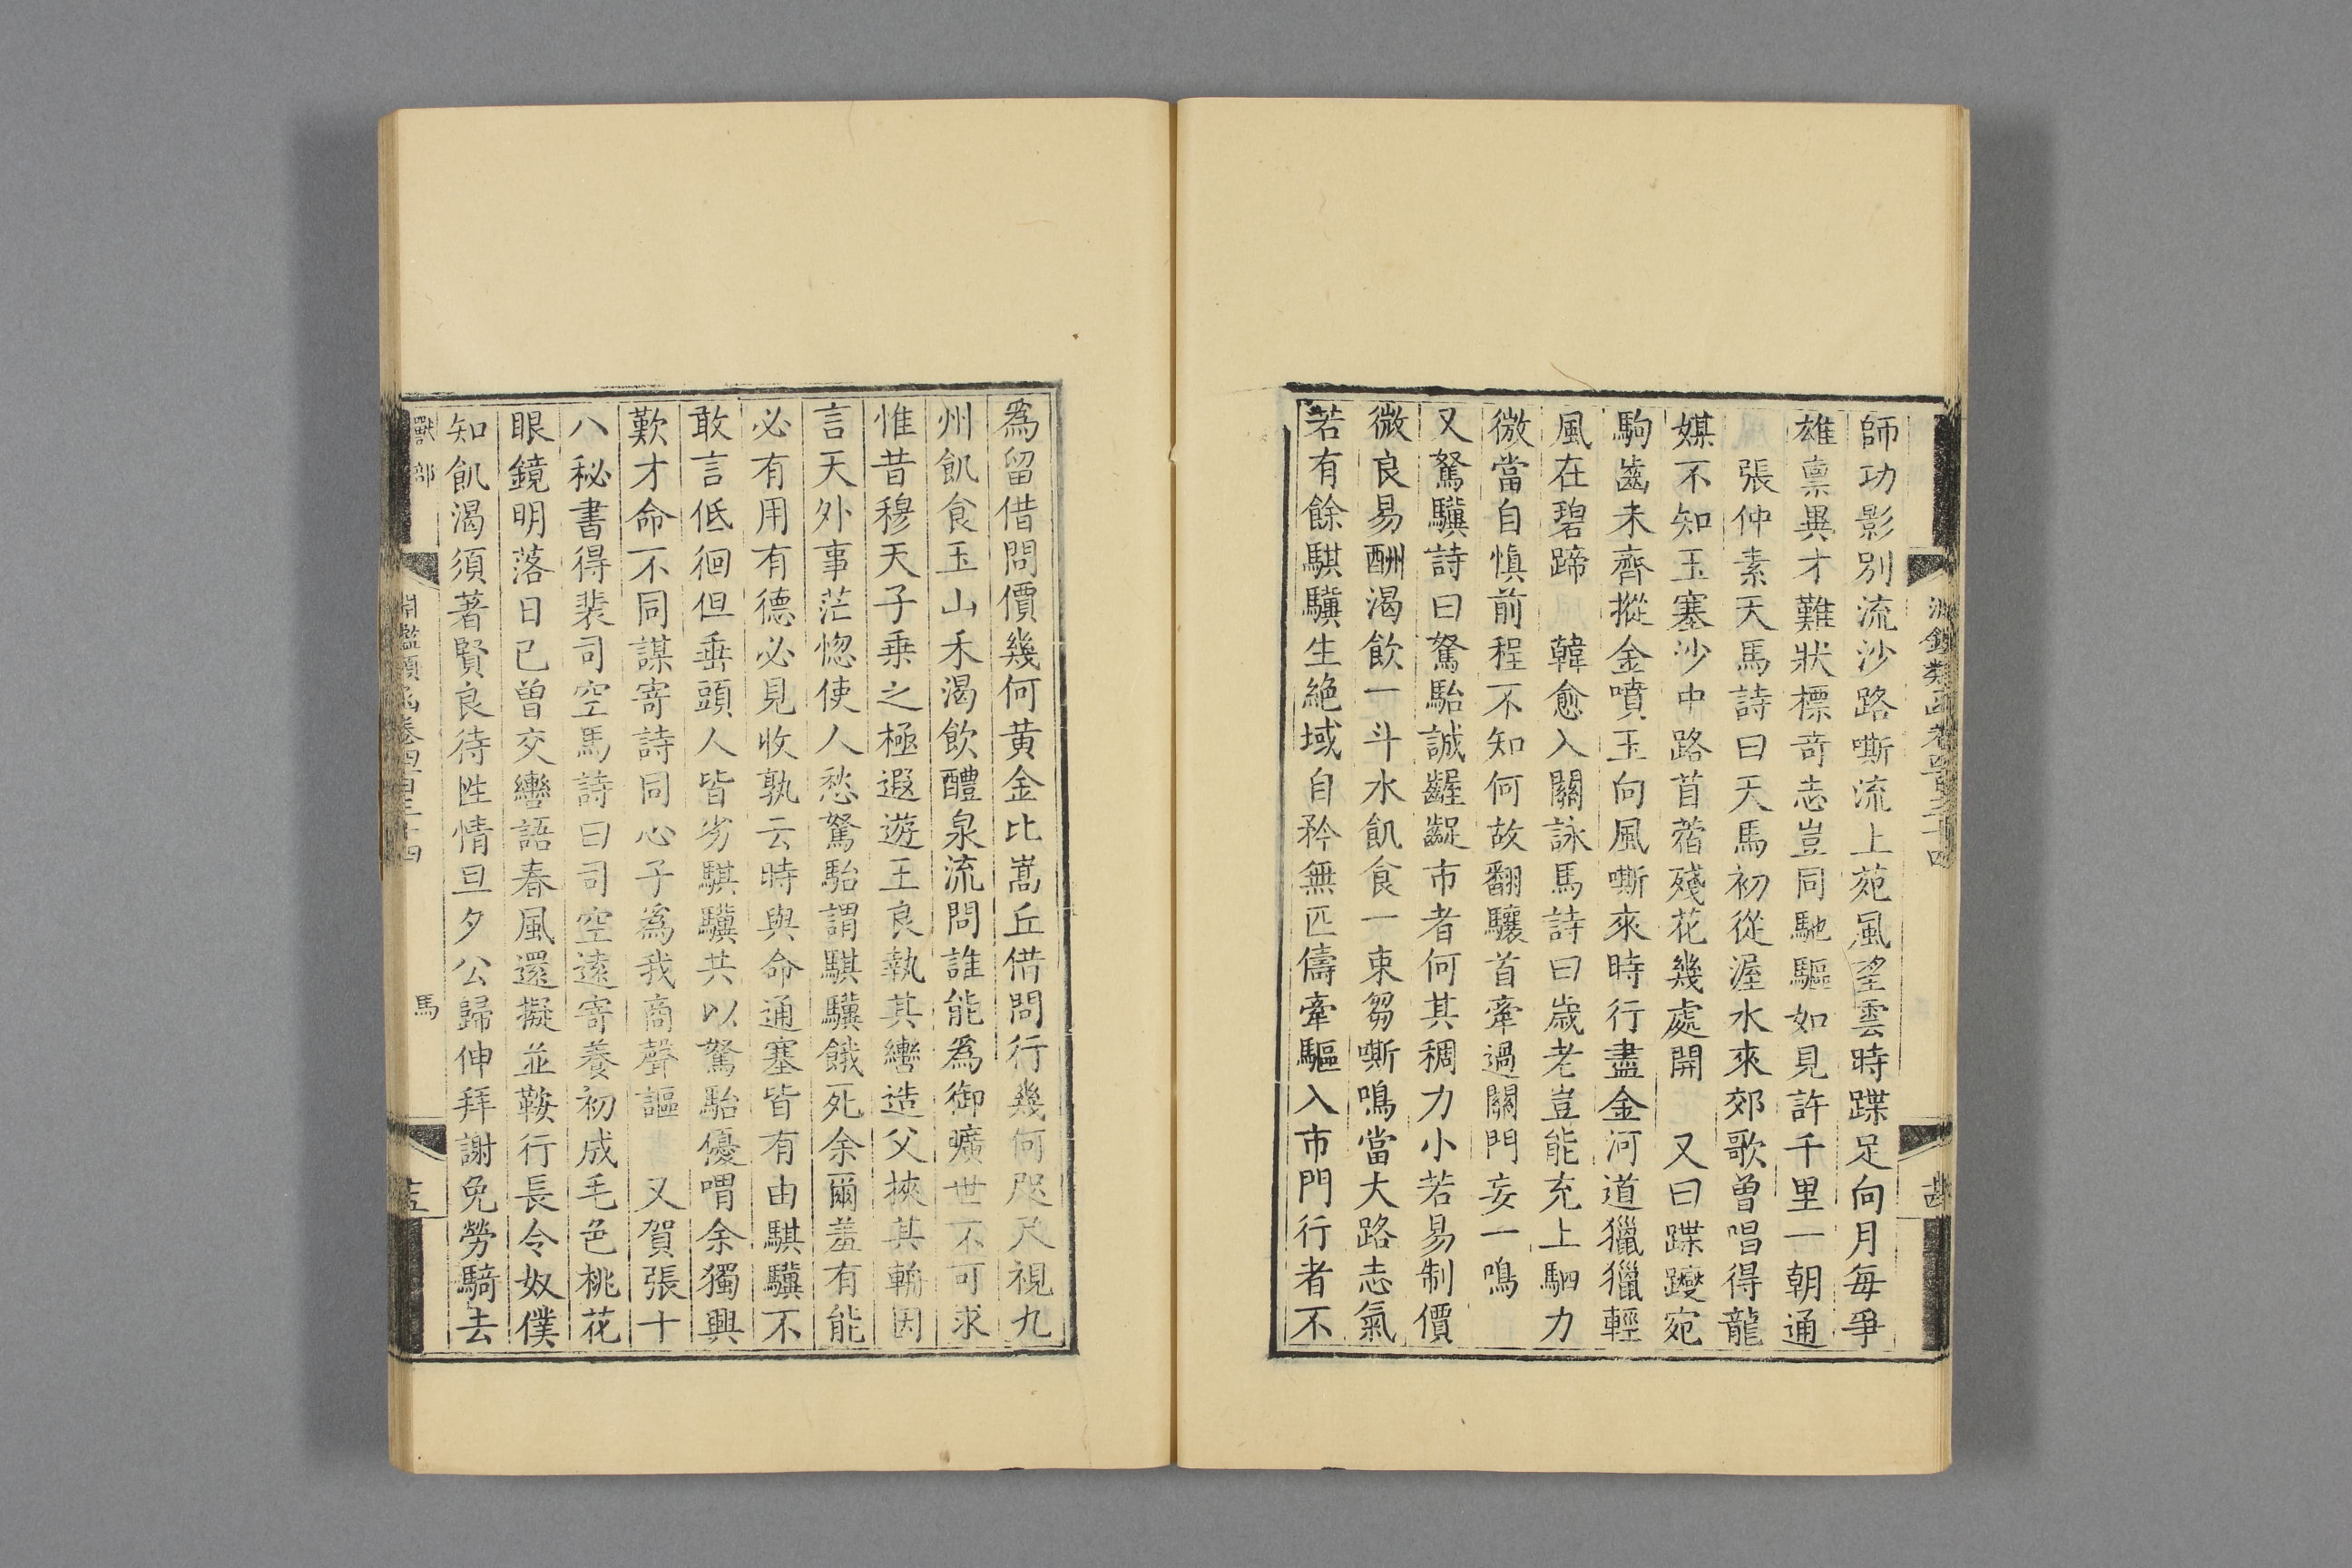 師功影別流沙路嘶流上苑風望雲時蹀足向月每爭
雄禀異才難狀標奇志豈同馳驅如見許千里一朝通
張仲素天馬詩曰天馬初從渥水來郊歌曾唱得龍
媒不知玉塞沙中路苜蓿殘花幾處開　又曰蹀躞宛
駒齒未齊摐金噴玉向風嘶來時行盡金河道獵獵輕
風在碧蹄　韓愈入關詠馬詩曰歲老豈能充上駟力
微當自慎前程不知何故翻驤首牽過關門妄一鳴
又駑驥詩曰駑駘誠齷齪市者何其稠力小若易制價
微良易酬渴飲一斗水飢食一束芻嘶鳴當大路志氣
若有餘騏驥生絕域自矜無匹儔牽驅入市門行者不
爲留借問價幾何黃金比嵩丘借問行幾何咫尺視九
州飢食玉山禾渴飲醴泉流問誰能爲御曠世不可求
惟昔穆天子乗之極遐遊王良執其轡造父挾其輈因
言天外事茫惚使人愁駑駘謂騏驥餓死余爾羞有能
必有用有德必見收孰云時與命通塞皆有由騏驥不
敢言低徊但垂頭人皆劣騏驥共以駑駘優喟余獨興
歎才命不同謀寄詩同心子爲我商聲謳　又賀張十
八秘書得裴司空馬詩曰司空遠寄養初成毛色桃花
眼鏡明落日已曾交轡語春風還擬並鞍行長令奴僕
知飢渴須著賢良待性情旦夕公歸伸拜謝免勞騎去
獸部
淵鑑類函卷四百三十四
馬